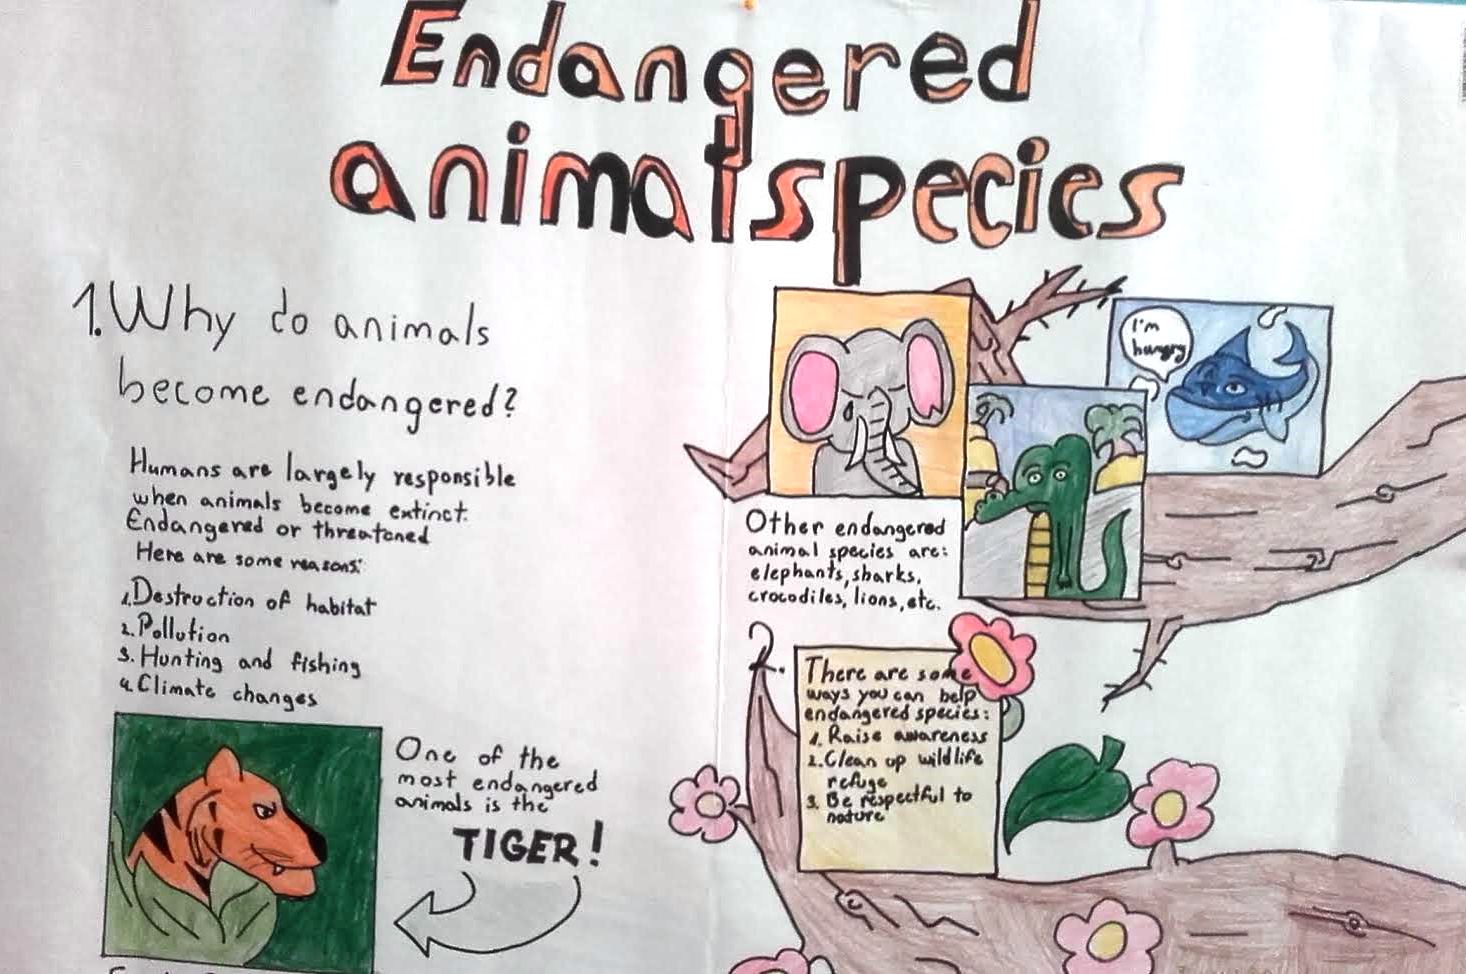 Endangered
animal species
1. Why do animals
become endangered?
Humans are largely responsible
when animals become extinct.
Endangered or threatened
Here are some reasons:
1. Destruction of habitat
2. Pollution
3. Hunting and fishing
4. Climate changes
One of the
most endangered
animals is the
TIGER!
I'm
hungry
Other endangered
animal species are:
elephants, sharks,
crocodiles, lions, etc.
2.
There are some
ways you can help
endangered species:
1. Raise awareness
2. Clean up wildlife
refuge
3. Be respectful to
nature